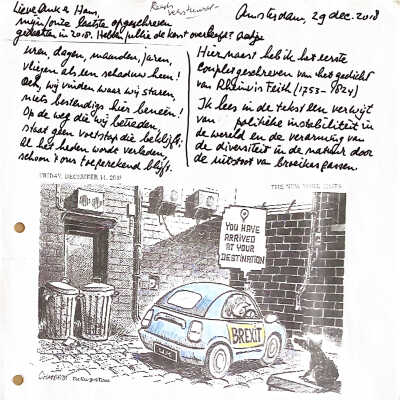 Lieve Anke & Hans,
Amsterdam, 29 dec. 2018
mijn/onze laatste opgeschreven
gedachten in 2018. Hebben jullie de kerst overleefd?
uren, dagen, maanden, jaren,
vliegen als een schaduw heen!
Ach, wij vinden waar wij staren,
niets bestendigs hier beneên!
Op de weg die wij betreden
staat geen voetstap die beklijft.
Al het heden wordt verleden,
schoon 't ons toegerekend blijft.
Hiernaast heb ik het eerste
couplet geschreven van het gedicht
van Rheinvis Feith (1753-1824)
Ik lees in de tekst een verwijt
van politieke instabiliteit in
de wereld en de verarming van
de diversiteit in de natuur door
de uitstoot van broeikasgassen.
FRIDAY, DECEMBER 14, 2018
THE NEW YORK TIMES
YOU HAVE
ARRIVED
AT YOUR
DESTINATION
BREXIT
CHAPPATTE